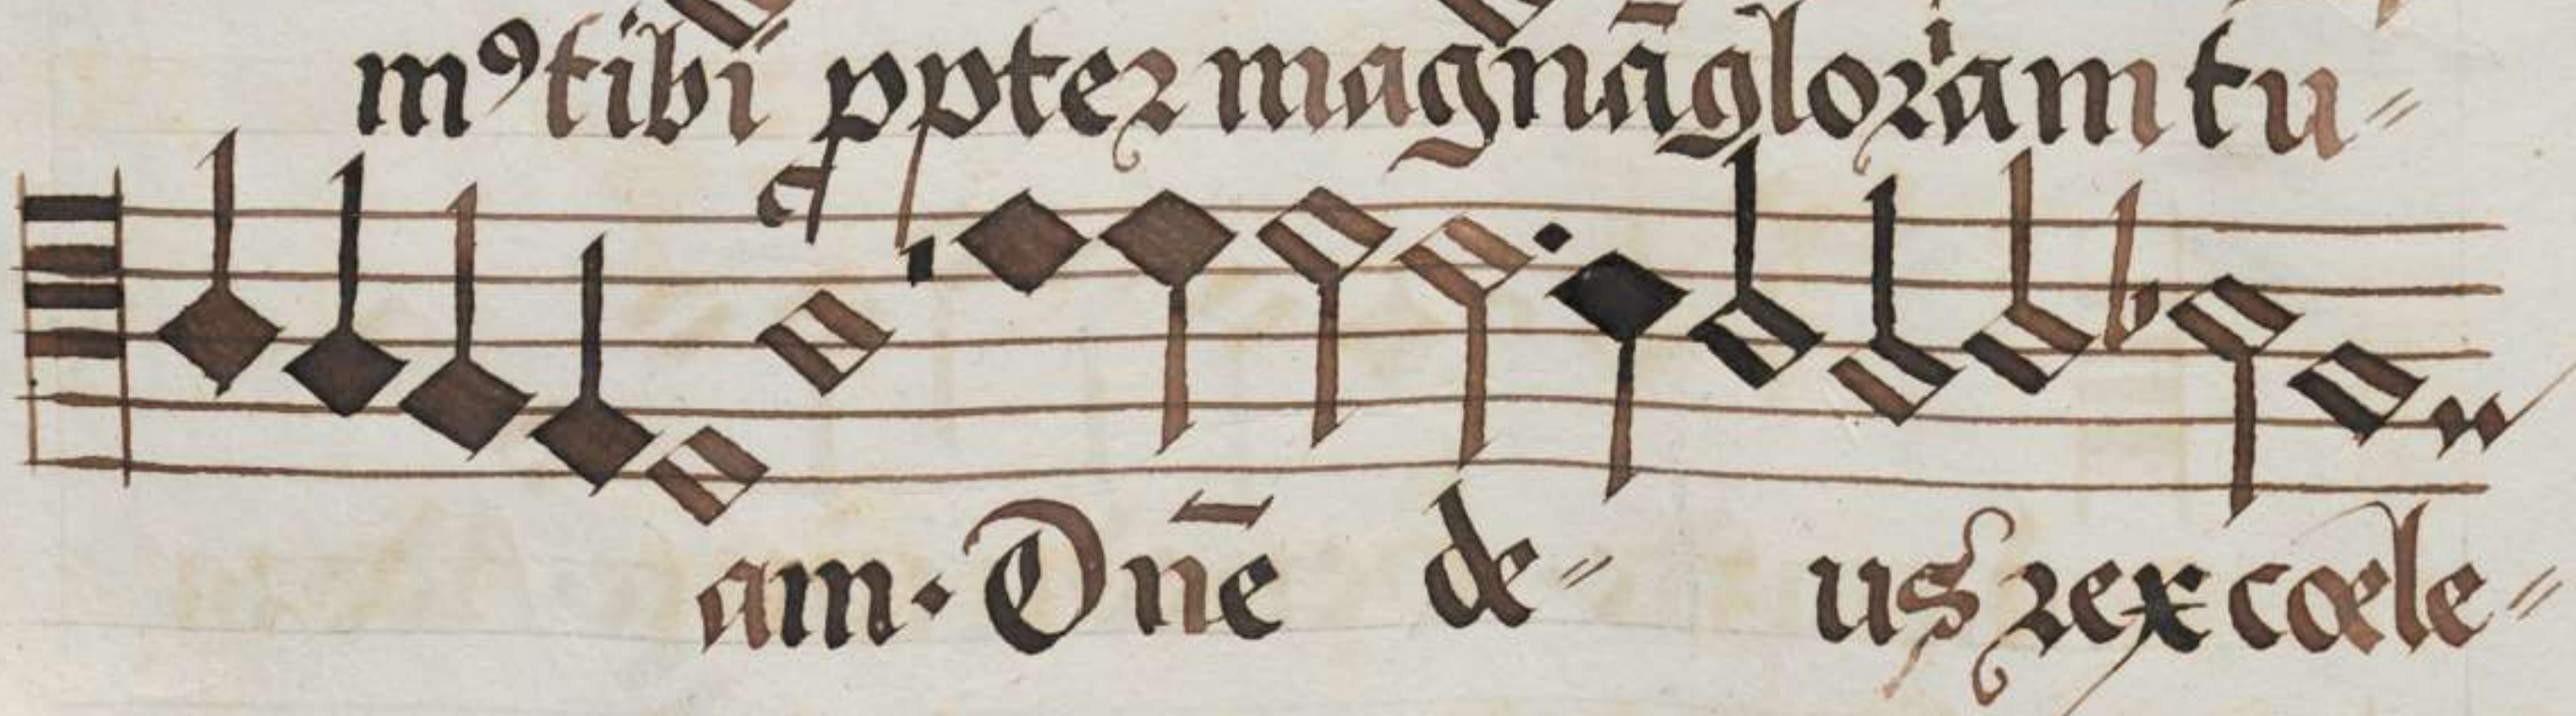 mꝰ tibi ppter magnā gloriam tu⸗
am. Dnē de⸗ us rex cœle⸗